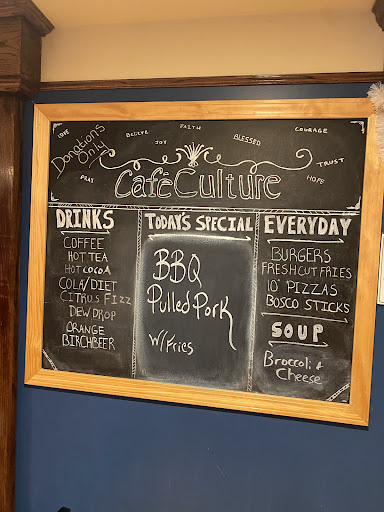 LOVE
Donations
Only
BELIEVE
FAITH
JOY
BLESSED
COURAGE
TRUST
PRAY
HOPE
Café Culture
DRINKS
COFFEE
HOT TEA
HOT COCOA
COLA/DIET
CITRUS FIZZ
DEW DROP
ORANGE
BIRCHBEER
TODAY'S SPECIAL
BBQ
Pulled Pork
W/Fries
EVERYDAY
BURGERS
FRESHCUT FRIES
10" PIZZAS
BOSCO STICKS
SOUP
Broccoli &
Cheese